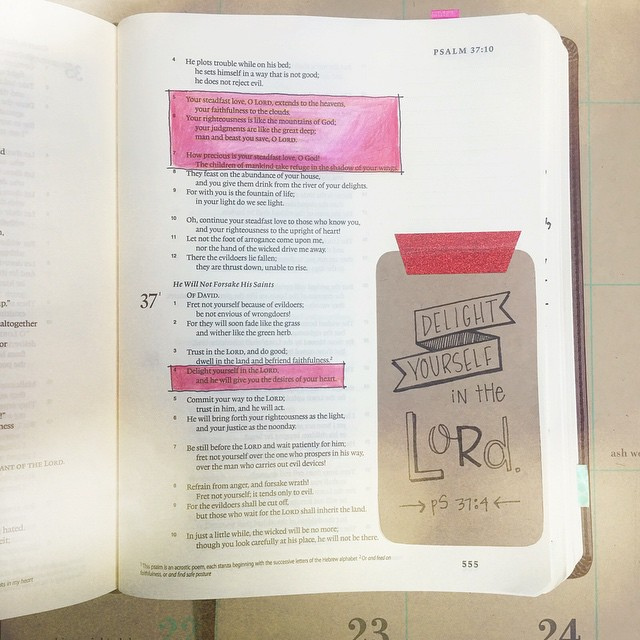 PSALM 37:10
4 He plots trouble while on his bed;
he sets himself in a way that is not good;
he does not reject evil.
5 Your steadfast love, O LORD, extends to the heavens,
your faithfulness to the clouds.
6 Your righteousness is like the mountains of God;
your judgments are like the great deep;
man and beast you save, O LORD.
7 How precious is your steadfast love, O God!
The children of mankind take refuge in the shadow of your wings.
8 They feast on the abundance of your house,
and you give them drink from the river of your delights.
9 For with you is the fountain of life;
in your light do we see light.
10 Oh, continue your steadfast love to those who know you,
and your righteousness to the upright of heart!
11 Let not the foot of arrogance come upon me,
nor the hand of the wicked drive me away.
12 There the evildoers lie fallen;
they are thrust down, unable to rise.
He Will Not Forsake His Saints
37 OF DAVID.
1 Fret not yourself because of evildoers;
be not envious of wrongdoers!
2 For they will soon fade like the grass
and wither like the green herb.
3 Trust in the LORD, and do good;
dwell in the land and befriend faithfulness.2
4 Delight yourself in the LORD,
and he will give you the desires of your heart.
5 Commit your way to the LORD;
trust in him, and he will act.
6 He will bring forth your righteousness as the light,
and your justice as the noonday.
7 Be still before the LORD and wait patiently for him;
fret not yourself over the one who prospers in his way,
over the man who carries out evil devices!
8 Refrain from anger, and forsake wrath!
Fret not yourself; it tends only to evil.
9 For the evildoers shall be cut off,
but those who wait for the LORD shall inherit the land.
10 In just a little while, the wicked will be no more;
though you look carefully at his place, he will not be there.
1 This psalm is an acrostic poem, each stanza beginning with the successive letters of the Hebrew alphabet 2 Or and feed on
faithfulness, or and find safe pasture
555
DELIGHT
YOURSELF
in the
LORd.
→ PS 37:4 ←
altogether
or
ness
ANT OF THE LORD.
hated.
ash we
23
24